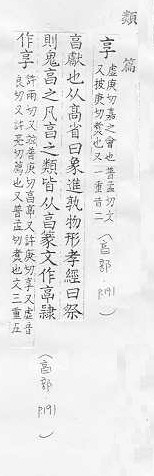 類篇
享 虛庚切嘉之會也普孟切文
又披庚切煑也又一重音二
(亯部 p191)
亯獻也从高省曰象進孰物形孝經曰祭
則鬼亯之凡亯之類皆从亯篆文作亯隸
作享 許兩切又普庚切亯帝又許庚切享又虛音
良切又許亮切薦也又普孟切煑也文三重五
(亯部 p191)